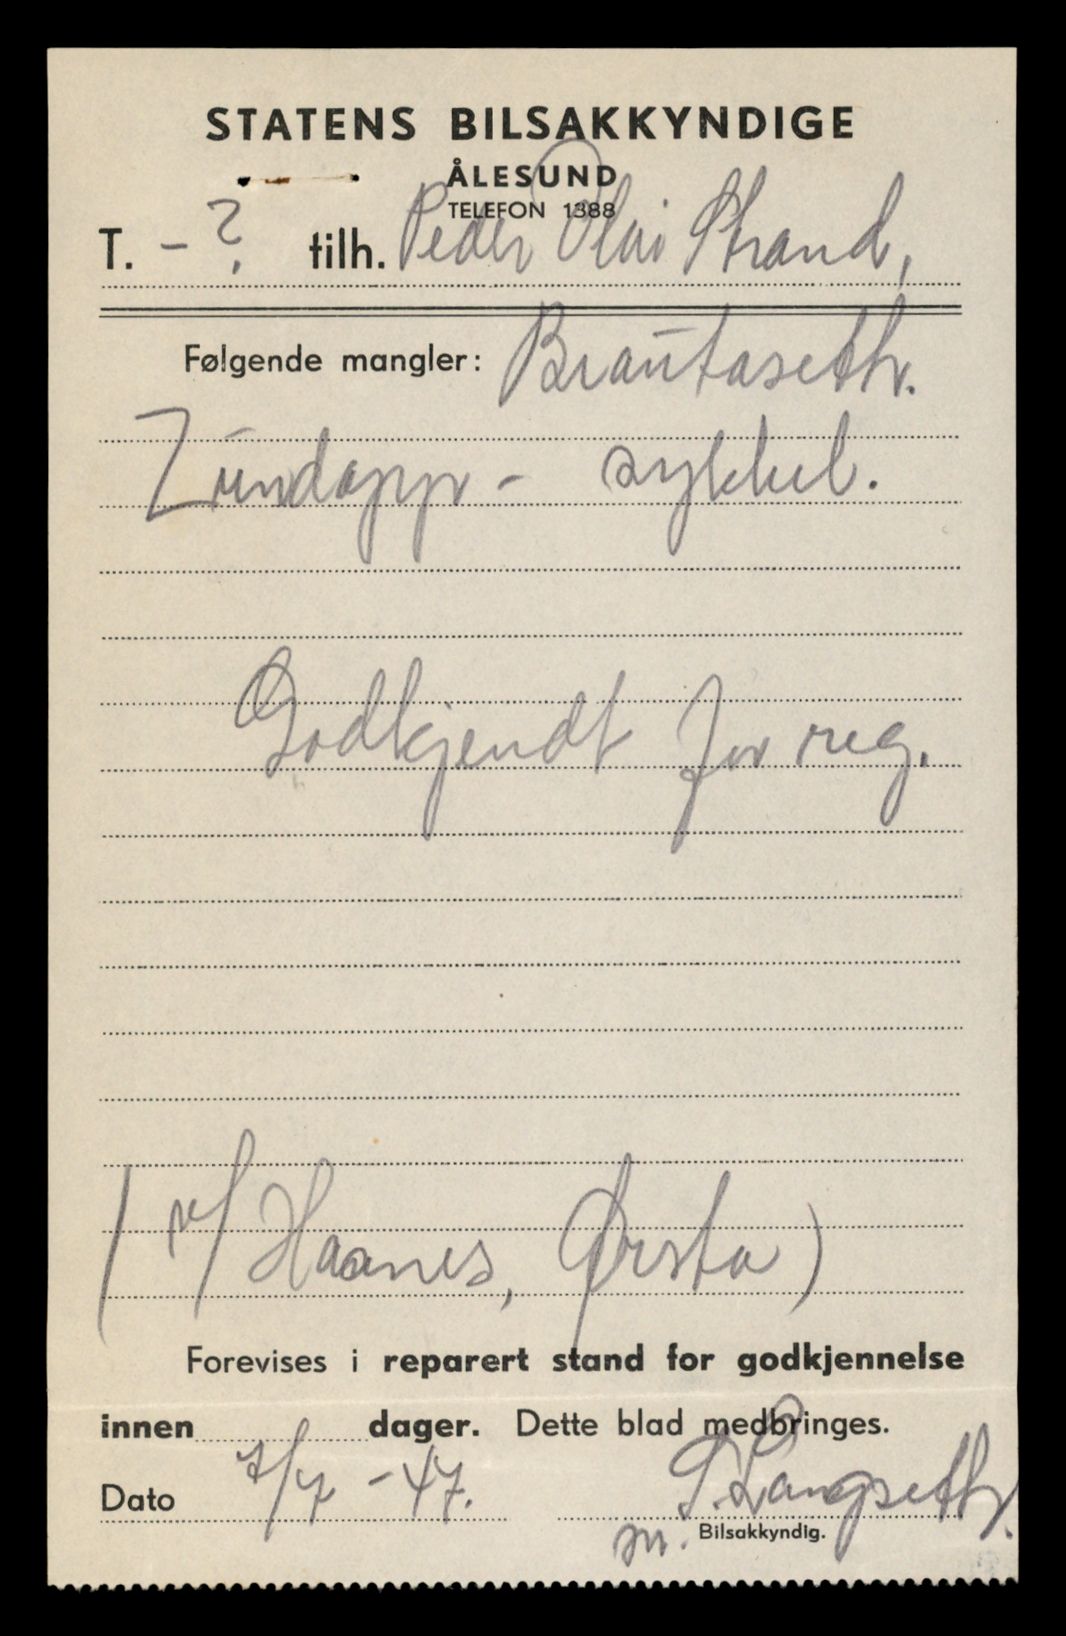 STATENS BILSAKKYNDIGE
ÅLESUND
TELEFON 1388
T. - ? tilh. Peder Olai Strand,
Følgende mangler: Brautaseth.
Zündapp - sykkel.
Godkjendt for reg.
( v/ Haanes, Ørsta )
Forevises i reparert stand for godkjennelse
innen dager. Dette blad medbringes.
Dato 7/7 - 47. S. Langseth.
m. Bilsakkyndig.